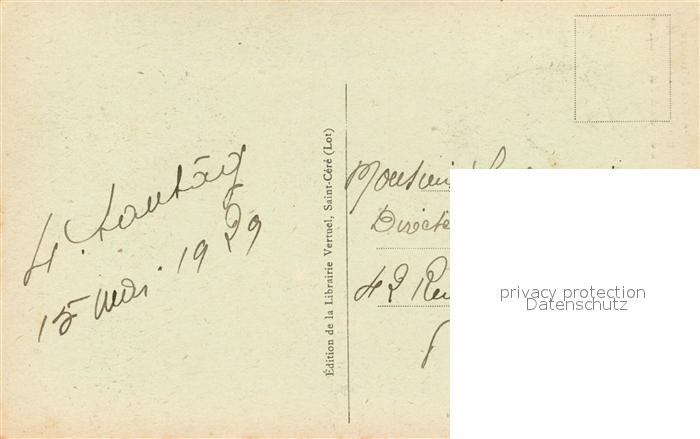 15 mai. 1929
Édition de la Librairie Vertuel, Saint-Céré (Lot)
Monsieu
Directe
42 Rue
privacy protection
Datenschutz